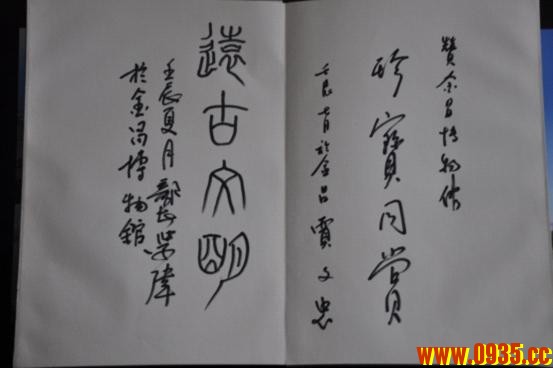 赞金昌博物馆
珍寶同賞
壬辰七月於金昌 賈文忠
遠古文明
壬辰夏月鄣榮偉
於金昌博物館
www.0935.cc